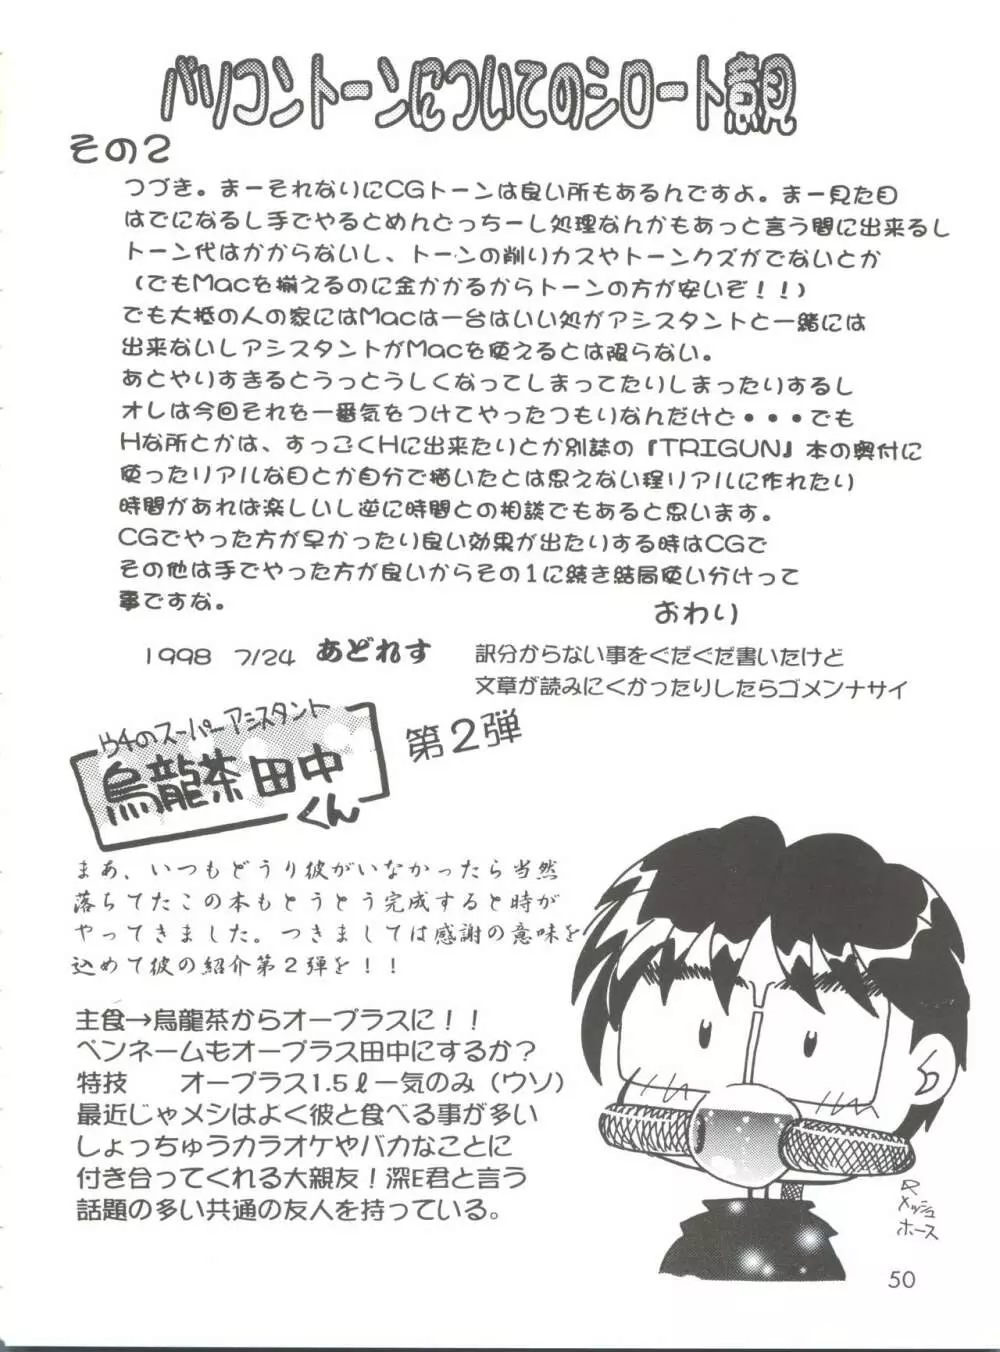 パソコントーンについてのシロート意見
その2
つづき。まーそれなりにCGトーンは良い所もあるんですよ。まー見た目
はでになるし手でやるとめんどっちーし処理なんかもあっと言う間に出来るし
トーン代はかからないし、トーンの削りカスやトーンクズがでないとか
(でもMacを揃えるのに金かかるからトーンの方が安いぞ!!)
でも大抵の人の家にはMacは一台はいい処がアシスタントと一緒には
出来ないしアシスタントがMacを使えるとは限らない。
あとやりすぎるとうっとうしくなってしまってたりしまったりするし
オレは今回それを一番気をつけてやったつもりなんだけど・・・でも
Hな所とかは、すっごくHに出来たりとか別誌の『TRIGUN』本の奥付に
使ったリアルな目とか自分で描いたとは思えない程リアルに作れたり
時間があれば楽しいし逆に時間との相談でもあると思います。
CGでやった方が早かったり良い効果が出たりする時はCGで
その他は手でやった方が良いからその1に続き結局使い分けって
事ですな。
おわり
1998 7/24 あどれす
訳分からない事をぐだぐだ書いたけど
文章が読みにくかったりしたらゴメンナサイ
ウチのスーパーアシスタント
烏龍茶田中
くん
第2弾
まあ、いつもどうり彼がいなかったら当然
落ちてたこの本もとうとう完成すると時が
やってきました。つきましては感謝の意味を
込めて彼の紹介第2弾を!!
主食→烏龍茶からオープラスに!!
ペンネームもオープラス田中にするか?
特技 オープラス1.5ℓ一気のみ(ウソ)
最近じゃメシはよく彼と食べる事が多い
しょっちゅうカラオケやバカなことに
付き合ってくれる大親友!深E君と言う
話題の多い共通の友人を持っている。
メッシュ
ホース
50